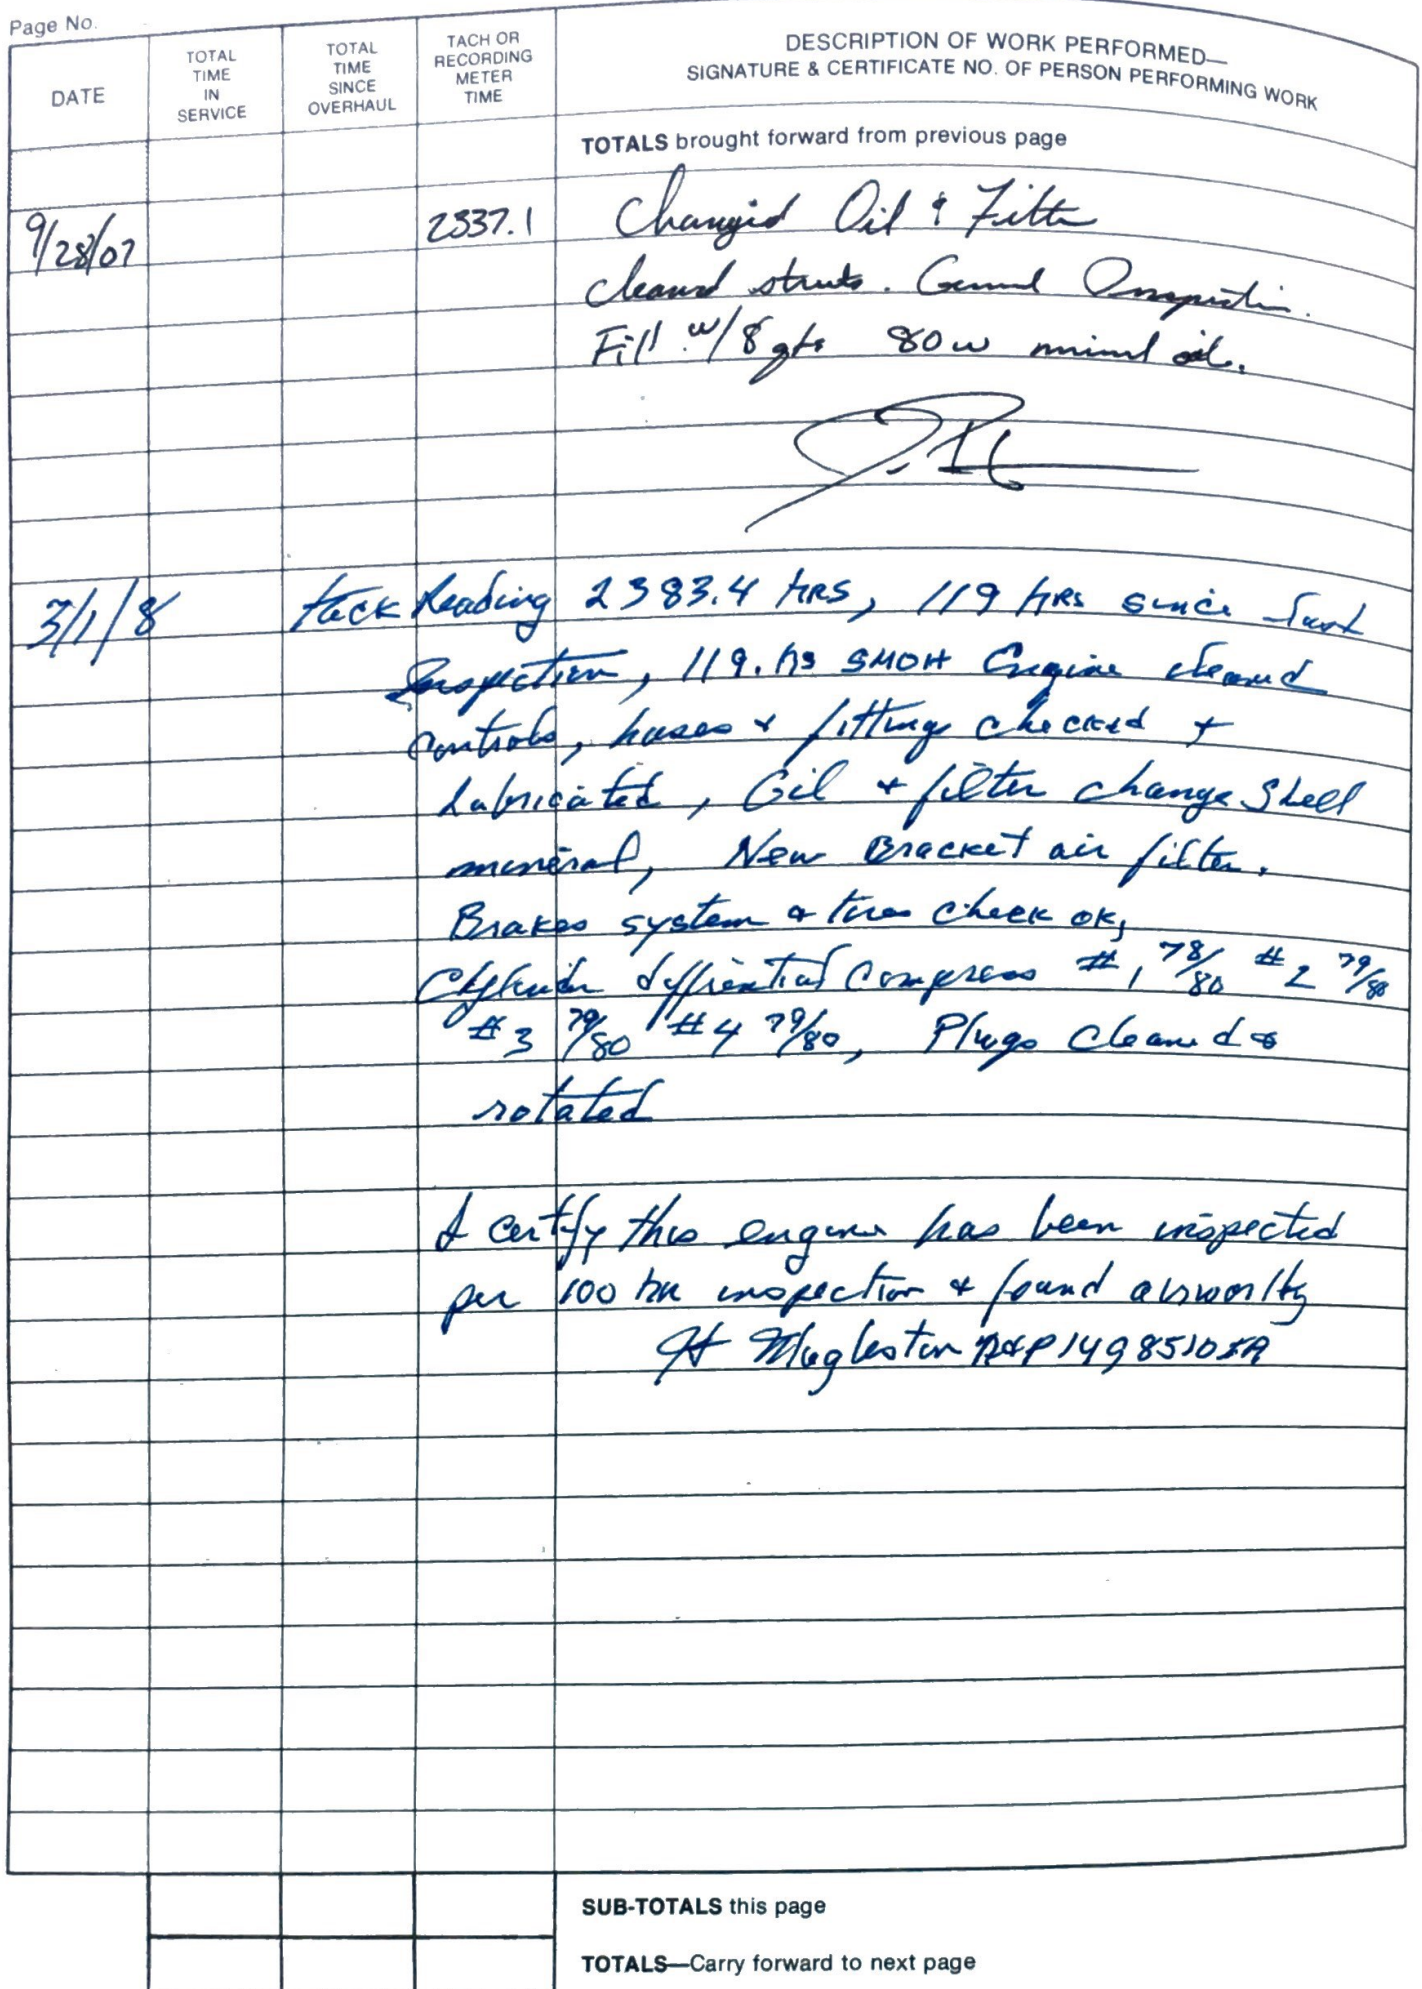 Page No.
DATE
TOTAL
TIME
IN
SERVICE
TOTAL
TIME
SINCE
OVERHAUL
TACH OR
RECORDING
METER
TIME
DESCRIPTION OF WORK PERFORMED—
SIGNATURE & CERTIFICATE NO. OF PERSON PERFORMING WORK
TOTALS brought forward from previous page
9/28/07 2337.1 Changed Oil & Filter
cleaned struts. General Inspection.
Fill w/8 qts 80w mineral oil.
3/1/8 tack Reading 2383.4 HRS, 119 HRS since last
Inspection, 119. hs SMOH Engine cleaned
controls, hoses & fittings checked &
Lubricated, Oil & filter change Shell
mineral, New Bracket air filter.
Brakes system & tires check ok,
Cylinder diffrential compress #1 78/80 #2 79/80
#3 79/80 #4 79/80, Plugs cleaned &
rotated
I certify this engine has been inspected
per 100 hr inspection & found airworthy
H Mugleston A&P 1498510 IA
SUB-TOTALS this page
TOTALS—Carry forward to next page